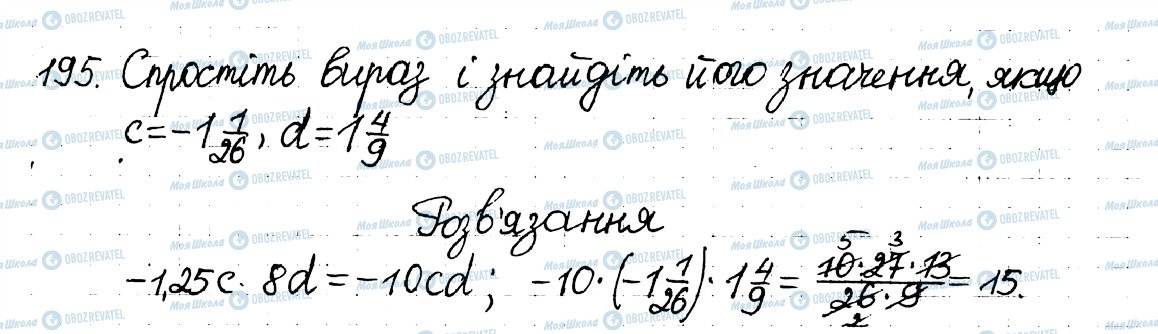 195. Спростіть вираз і знайдіть його значення, якщо
c=-1 1/26, d=1 4/9
Розв'язання
-1,25c · 8d = -10cd; -10·(-1 1/26)·1 4/9 = (10·27·13)/(26·9) = 15.
5 3
2
МояШкола OBOZREVATEL